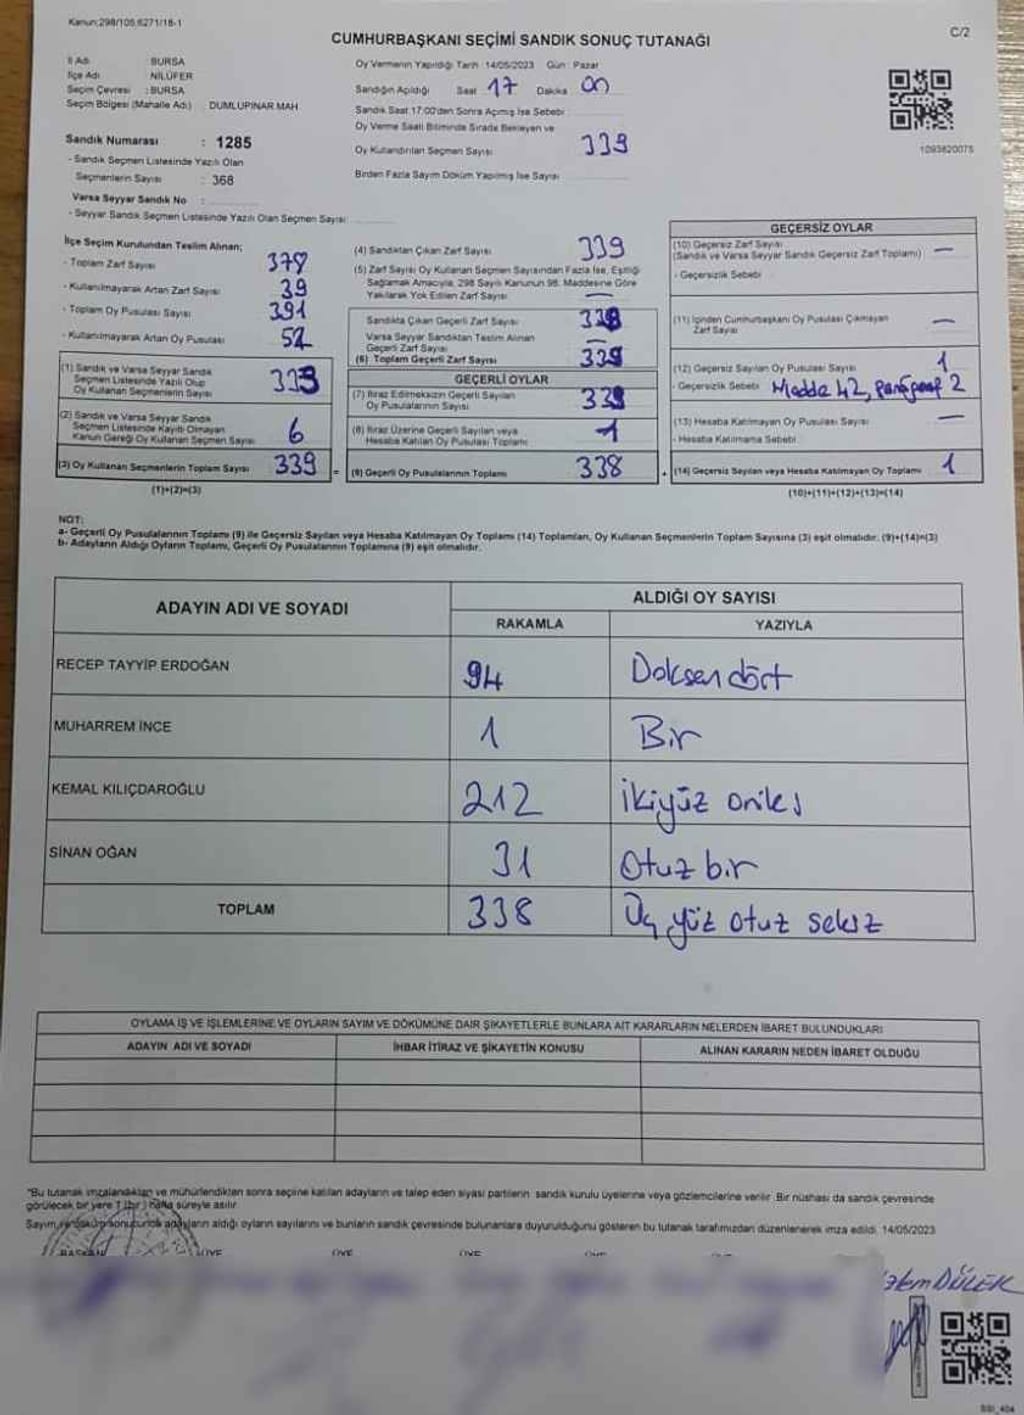 Kanun:298/105,6271/18-1
C/2
CUMHURBAŞKANI SEÇİMİ SANDIK SONUÇ TUTANAĞI
İl Adı : BURSA
İlçe Adı : NİLÜFER
Seçim Çevresi : BURSA
Seçim Bölgesi (Mahalle Adı) : DUMLUPINAR MAH
Sandık Numarası : 1285
- Sandık Seçmen Listesinde Yazılı Olan
Seçmenlerin Sayısı : 368
Varsa Seyyar Sandık No :
- Seyyar Sandık Seçmen Listesinde Yazılı Olan Seçmen Sayısı:
Oy Vermenin Yapıldığı Tarih : 14/05/2023 Gün : Pazar
Sandığın Açıldığı Saat 17 Dakika 00
Sandık Saat 17:00'den Sonra Açılmış İse Sebebi
Oy Verme Saati Bitiminde Sırada Bekleyen ve
Oy Kullandırılan Seçmen Sayısı 339
Birden Fazla Sayım Döküm Yapılmış İse Sayısı
1093620075
İlçe Seçim Kurulundan Teslim Alınan;
- Toplam Zarf Sayısı 378
- Kullanılmayarak Artan Zarf Sayısı 39
- Toplam Oy Pusulası Sayısı 391
- Kullanılmayarak Artan Oy Pusulası 52
(1) Sandık ve Varsa Seyyar Sandık
Seçmen Listesinde Yazılı Olup
Oy Kullanan Seçmenlerin Sayısı 333
(2) Sandık ve Varsa Seyyar Sandık
Seçmen Listesinde Kayıtlı Olmayan
Kanun Gereği Oy Kullanan Seçmen Sayısı 6
(3) Oy Kullanan Seçmenlerin Toplam Sayısı 339
(1)+(2)=(3)
(4) Sandıktan Çıkan Zarf Sayısı 339
(5) Zarf Sayısı Oy Kullanan Seçmen Sayısından Fazla İse, Eşitliği
Sağlamak Amacıyla, 298 Sayılı Kanunun 98. Maddesine Göre
Yakılarak Yok Edilen Zarf Sayısı —
Sandıkta Çıkan Geçerli Zarf Sayısı
Varsa Seyyar Sandıktan Teslim Alınan
Geçerli Zarf Sayısı —
(6) Toplam Geçerli Zarf Sayısı 339
=
GEÇERLİ OYLAR
(7) İtiraz Edilmeksizin Geçerli Sayılan
Oy Pusulalarının Sayısı
(8) İtiraz Üzerine Geçerli Sayılan veya
Hesaba Katılan Oy Pusulası Toplamı 1
(9) Geçerli Oy Pusulalarının Toplamı 338
+
GEÇERSİZ OYLAR
(10) Geçersiz Zarf Sayısı
(Sandık ve Varsa Seyyar Sandık Geçersiz Zarf Toplamı) —
- Geçersizlik Sebebi
(11) İçinden Cumhurbaşkanı Oy Pusulası Çıkmayan
Zarf Sayısı —
(12) Geçersiz Sayılan Oy Pusulası Sayısı 1
- Geçersizlik Sebebi Madde 42, paragraf 2
(13) Hesaba Katılmayan Oy Pusulası Sayısı —
- Hesaba Katılmama Sebebi
(14) Geçersiz Sayılan veya Hesaba Katılmayan Oy Toplamı 1
(10)+(11)+(12)+(13)=(14)
NOT:
a- Geçerli Oy Pusulalarının Toplamı (9) ile Geçersiz Sayılan veya Hesaba Katılmayan Oy Toplamı (14) Toplamları, Oy Kullanan Seçmenlerin Toplam Sayısına (3) eşit olmalıdır. (9)+(14)=(3)
b- Adayların Aldığı Oyların Toplamı, Geçerli Oy Pusulalarının Toplamına (9) eşit olmalıdır.
ADAYIN ADI VE SOYADI
ALDIĞI OY SAYISI
RAKAMLA YAZIYLA
RECEP TAYYİP ERDOĞAN 94 Doksan dört
MUHARREM İNCE 1 Bir
KEMAL KILIÇDAROĞLU 212 İkiyüz oniki
SİNAN OĞAN 31 Otuz bir
TOPLAM 338 Üç yüz otuz sekiz
OYLAMA İŞ VE İŞLEMLERİNE VE OYLARIN SAYIM VE DÖKÜMÜNE DAİR ŞİKAYETLERLE BUNLARA AİT KARARLARIN NELERDEN İBARET BULUNDUKLARI
ADAYIN ADI VE SOYADI İHBAR İTİRAZ VE ŞİKAYETİN KONUSU ALINAN KARARIN NEDEN İBARET OLDUĞU
"Bu tutanak imzalandıktan ve mühürlendikten sonra seçime katılan adayların ve talep eden siyasi partilerin sandık kurulu üyelerine veya gözlemcilerine verilir. Bir nüshası da sandık çevresinde
görülecek bir yere 1 (bir) hafta süreyle asılır.
Sayım ve döküm sonucunda adayların aldığı oyların sayılarını ve bunların sandık çevresinde bulunanlara duyurulduğunu gösteren bu tutanak tarafımızdan düzenlenerek imza edildi. 14/05/2023
BAŞKAN ÜYE ÜYE ÜYE ÜYE ÜYE
DÜLEK